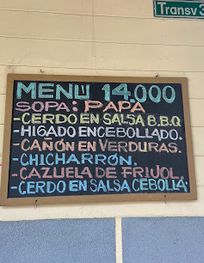 Transv 3
MENU 14.000
SOPA: PAPA
-CERDO EN SALSA B.B.Q
-HIGADO ENCEBOLLADO.
-CAÑÓN EN VERDURAS.
-CHICHARRÓN.
-CAZUELA DE FRIJOL.
-CERDO EN SALSA CEBOLLA